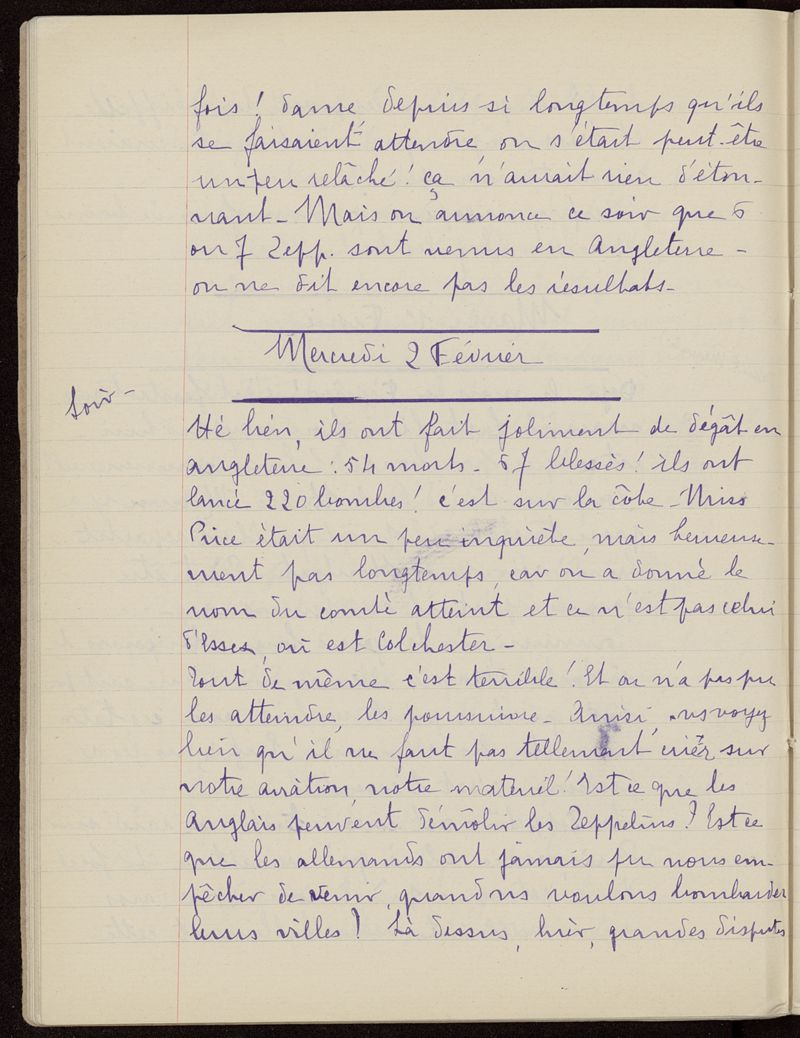 fois! dame depuis si longtemps qu'ils
se faisaient attendre on s'était peut-être
un peu relâché! ça n'aurait rien d'éton-
nant - Mais on annonce ce soir que 6
ou 7 Zepp. sont venus en Angleterre -
on ne dit encore pas les résultats -
Mercredi 2 Février
Soir -
Hé bien, ils ont fait joliment de dégât en
angleterre : 54 morts - 67 blessés! ils ont
lancé 220 bombes! c'est sur la côte - Miss
Price était un peu inquiète, mais heureuse-
ment pas longtemps, car on a donné le
nom du comté atteint et ce n'est pas celui
d'Essex, où est Colchester -
Tout de même c'est terrible! Et on n'a pas pu
les atteindre, les poursuivre - Ainsi, vs voyez
bien qu'il ne faut pas tellement crier sur
notre aviation, notre matériel! Est ce que les
anglais peuvent démolir les Zeppelins? Est ce
que les allemands ont jamais pu nous em-
pêcher de venir, quand ns voulons bombarder
leurs villes? Là dessus, hier, grandes disputes